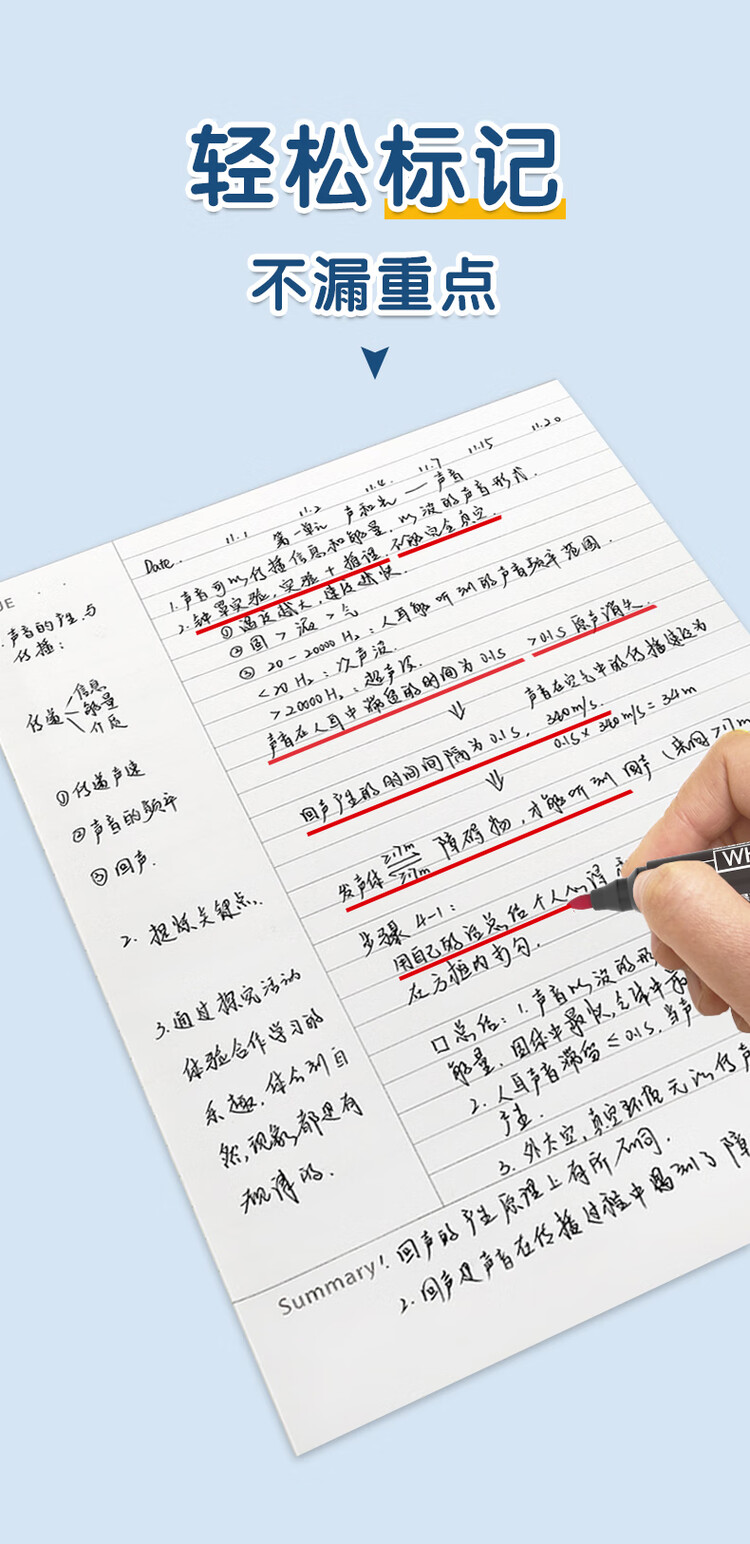 轻松标记
不漏重点
Date. 11.1 11.2 11.4 11.7 11.15 11.20
第一单元 声和光 — 声音
1. 声音可以传播信息和能量, 以波的声音形式.
2. 钟罩实验, 实验+推理, 不能完全真空.
① 温度越大, 速度越快.
② 固 > 液 > 气
③ 20-20000Hz: 人耳能听到的声音频率范围.
<20Hz: 次声波.
>20000Hz: 超声波.
声音在人耳中滞留的时间为0.1s >0.1s原声消失.
声音在空气中的传播速度为
340m/s.
回声产生的时间间隔为0.1s, 0.15×340m/s=34m
发声体 217m 217m 障碍物, 才能听到回声 (来回217m
步骤4-1:
用自己的话总结个人心得
在方框内
口总结: 1. 声音以波的形
能量, 固体中最快, 气体中
2. 人耳声音滞留≤0.1s, 当声
产生.
3. 外太空, 真空环境无以传声
UE
声音的产生与
传播:
传递 信息
能量
介质
①传递声速
②声音的频率
③回声.
2. 提炼关键点.
3. 通过探究活动
体验合作学习的
乐趣, 体会到自
然现象都是有
规律的.
Summary 1. 回声的产生原理上有所不同.
2. 回声是声音在传播过程中遇到了障
WH